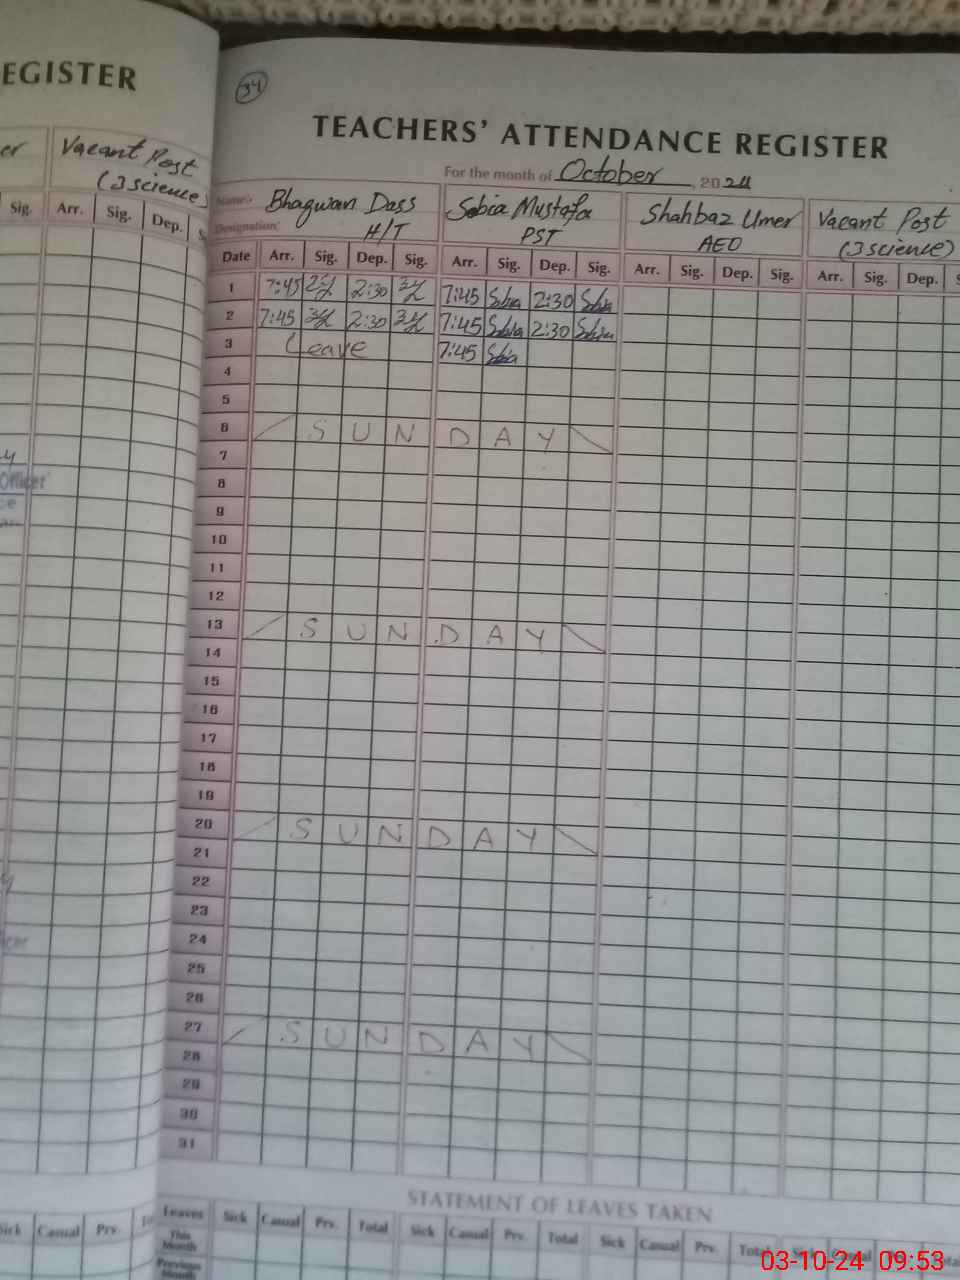 EGISTER
er Vacant Post
(3 science)
Sig. Arr. Sig. Dep.
Officer
34
TEACHERS' ATTENDANCE REGISTER
For the month of October, 2024
Name: Bhagwan Dass Sobia Mustafa Shahbaz Umer Vacant Post
Designation: H/T PST AEO (3 science)
Date Arr. Sig. Dep. Sig. Arr. Sig. Dep. Sig. Arr. Sig. Dep. Sig. Arr. Sig. Dep.
1 7:45 2:30 7:45 Sobia 2:30 Sobia
2 7:45 2:30 7:45 Sobia 2:30 Sobia
3 Leave 7:45 Sobia
4
5
6 SUNDAY
7
8
9
10
11
12
13 SUNDAY
14
15
16
17
18
19
20 SUNDAY
21
22
23
24
25
26
27 SUNDAY
28
29
30
31
STATEMENT OF LEAVES TAKEN
Sick Casual Prv. Leaves Sick Casual Prv. Total Sick Casual Prv. Total Sick Casual Prv. Total
This Month
Previous Month
03-10-24 09:53